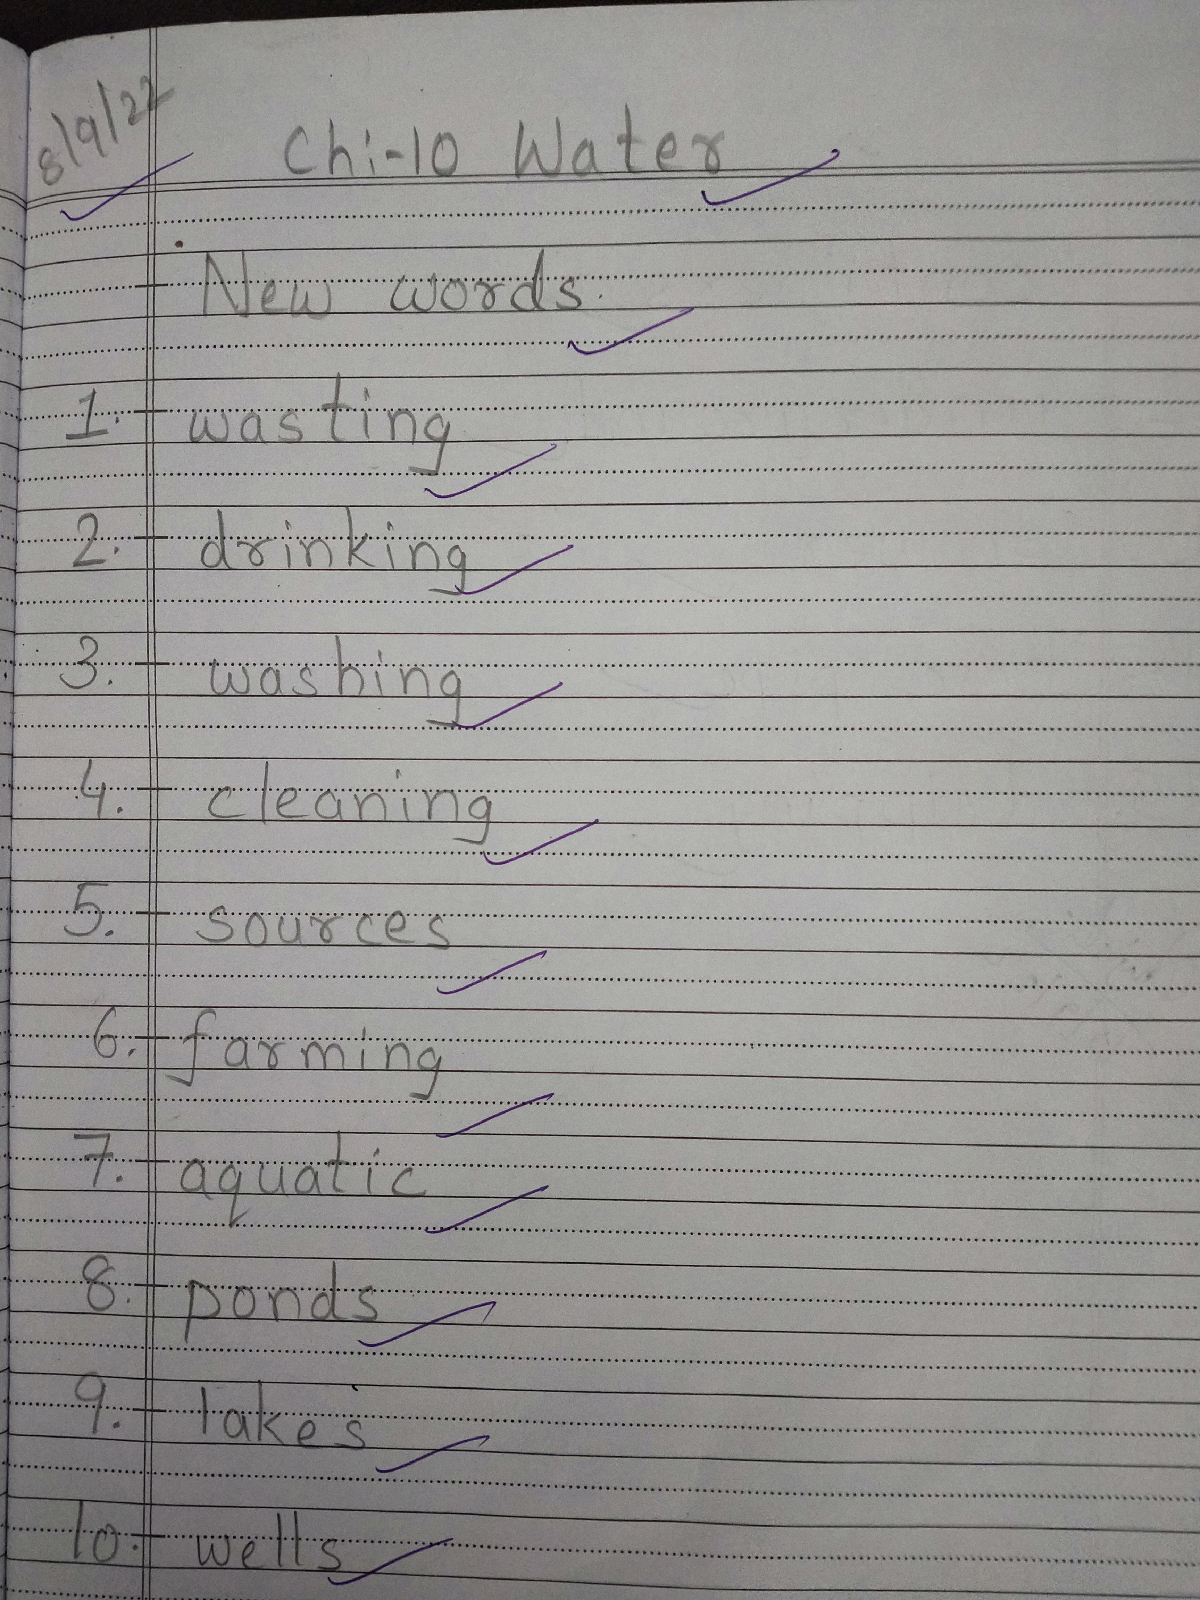 8/9/22
Chi-10 Water
New words.
1. wasting
2. drinking
3. washing
4. cleaning
5. sources
6. farming
7. aquatic
8. ponds
9. lakes
10. wells